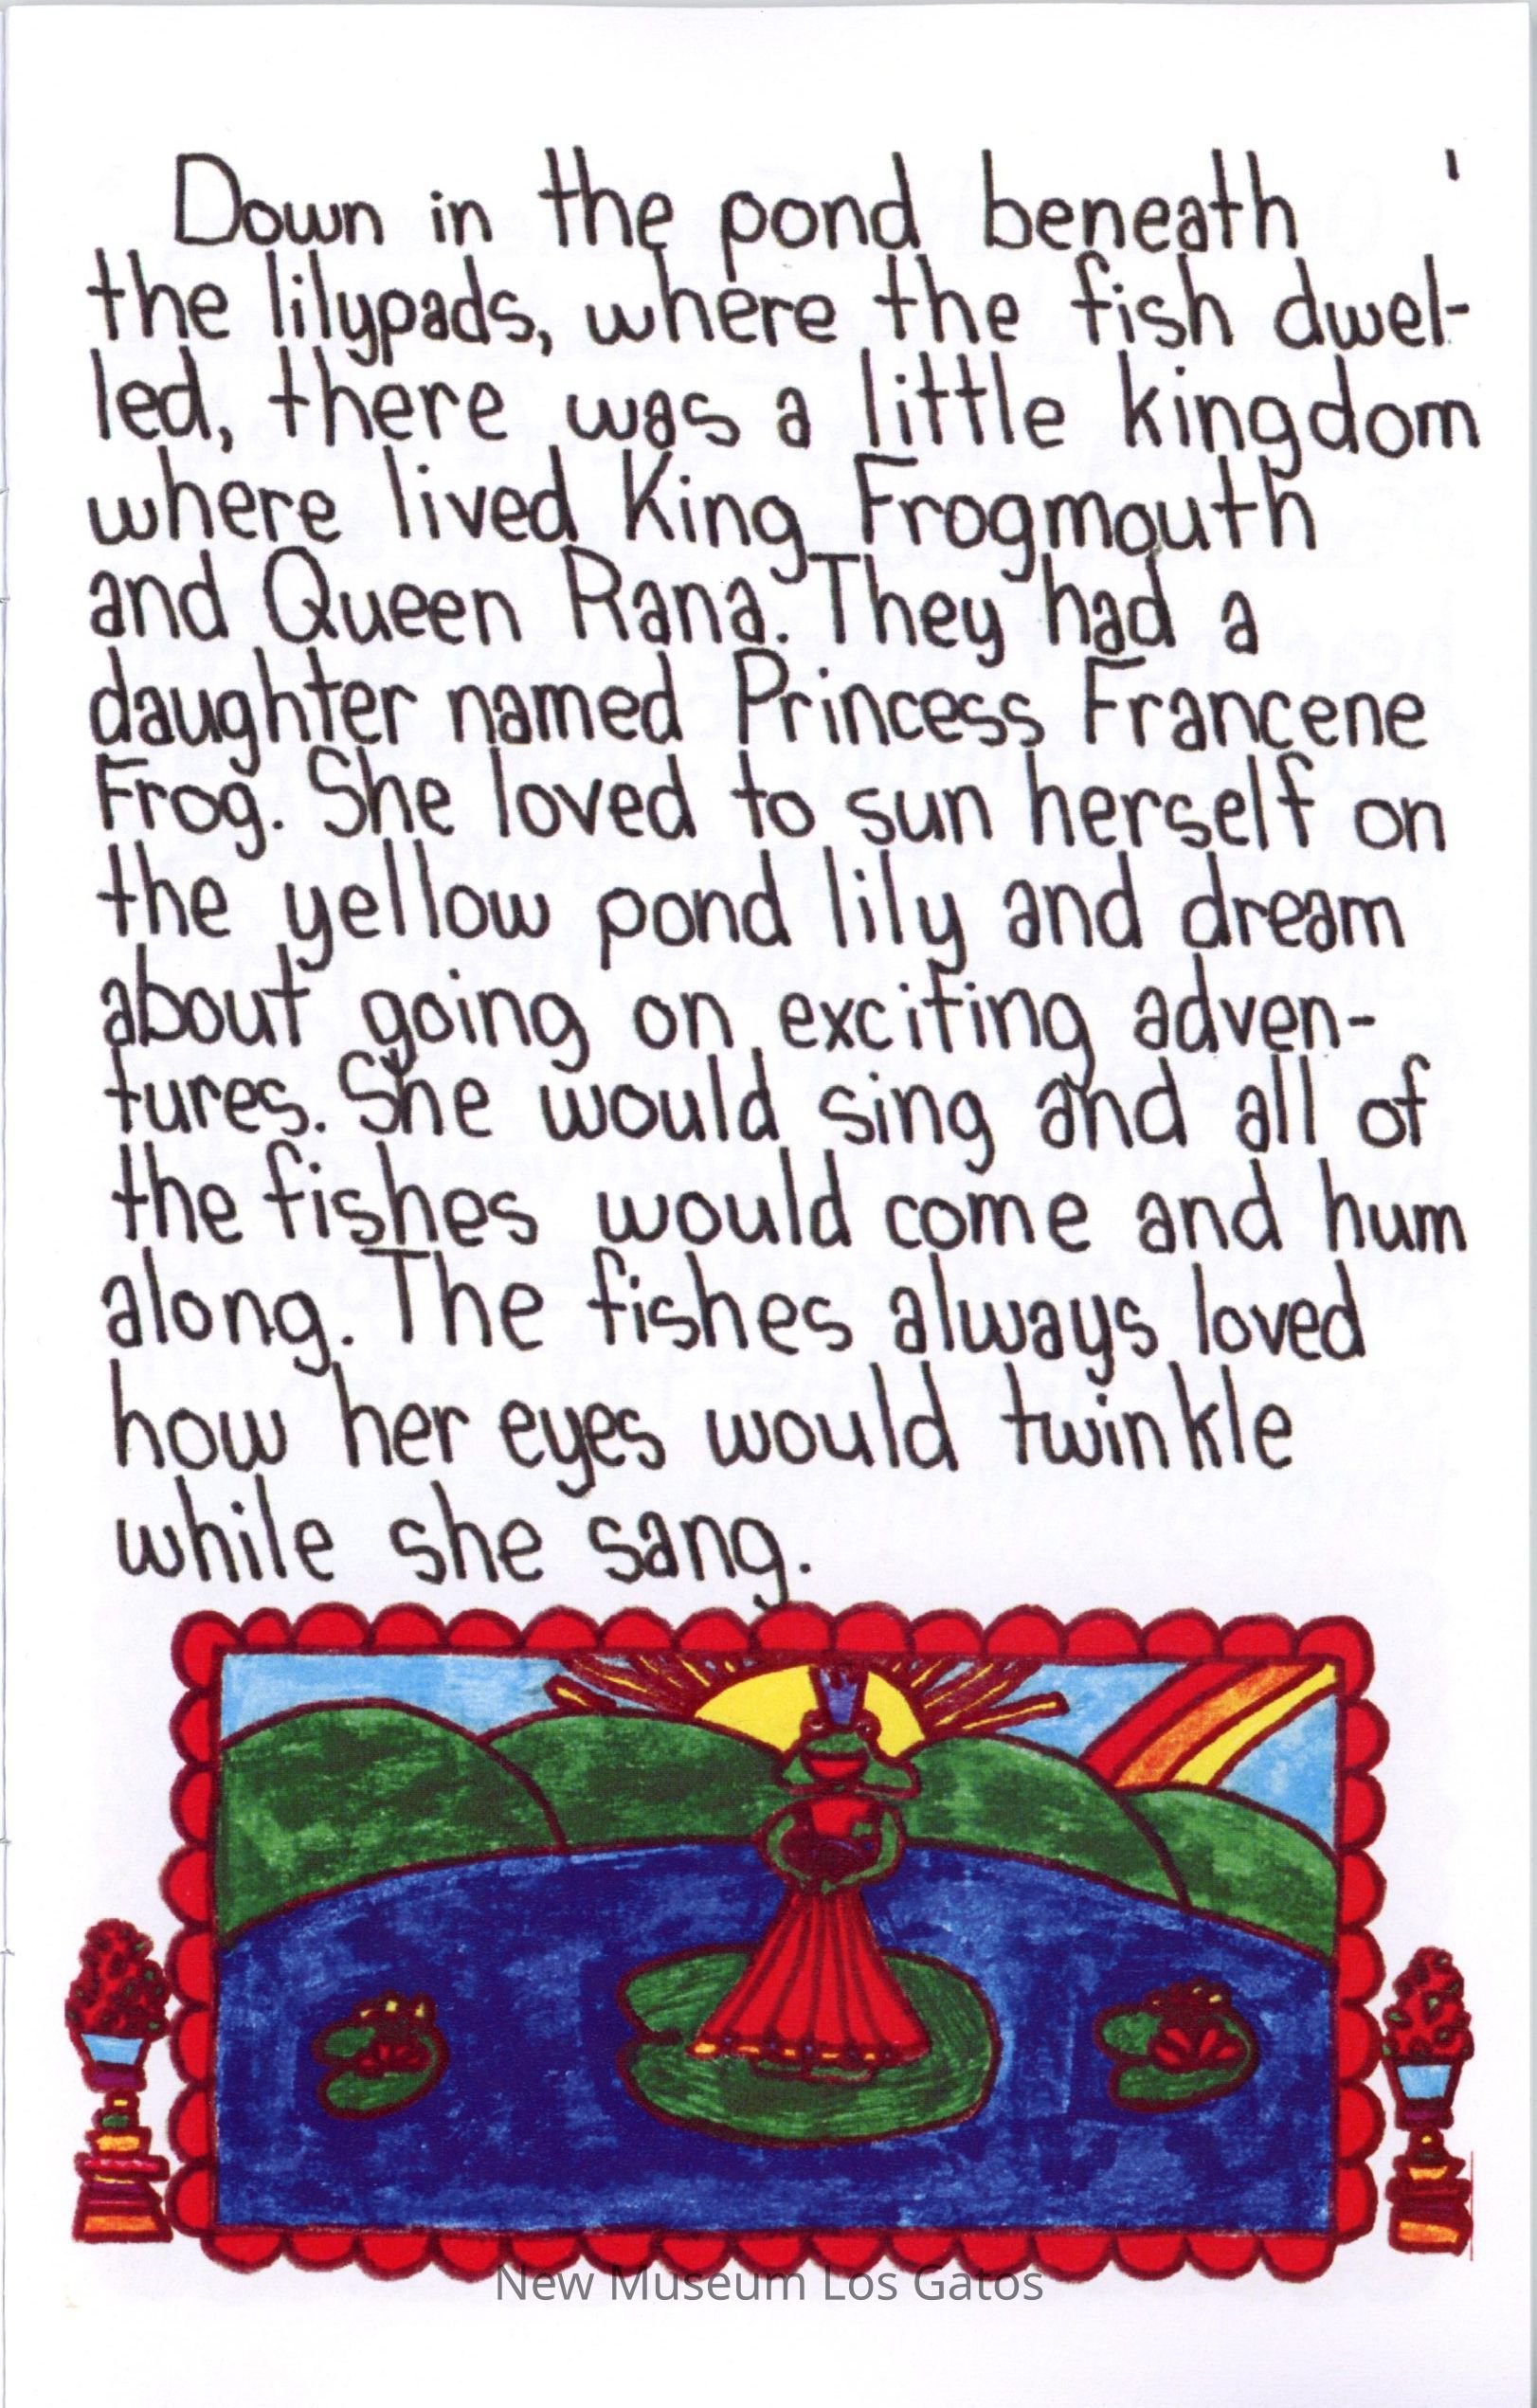 Down in the pond beneath
the lilypads, where the fish dwel-
led, there was a little kingdom
where lived King Frogmouth
and Queen Rana. They had a
daughter named Princess Francene
Frog. She loved to sun herself on
the yellow pond lily and dream
about going on exciting adven-
tures. She would sing and all of
the fishes would come and hum
along. The fishes always loved
how her eyes would twinkle
while she sang.
New Museum Los Gatos